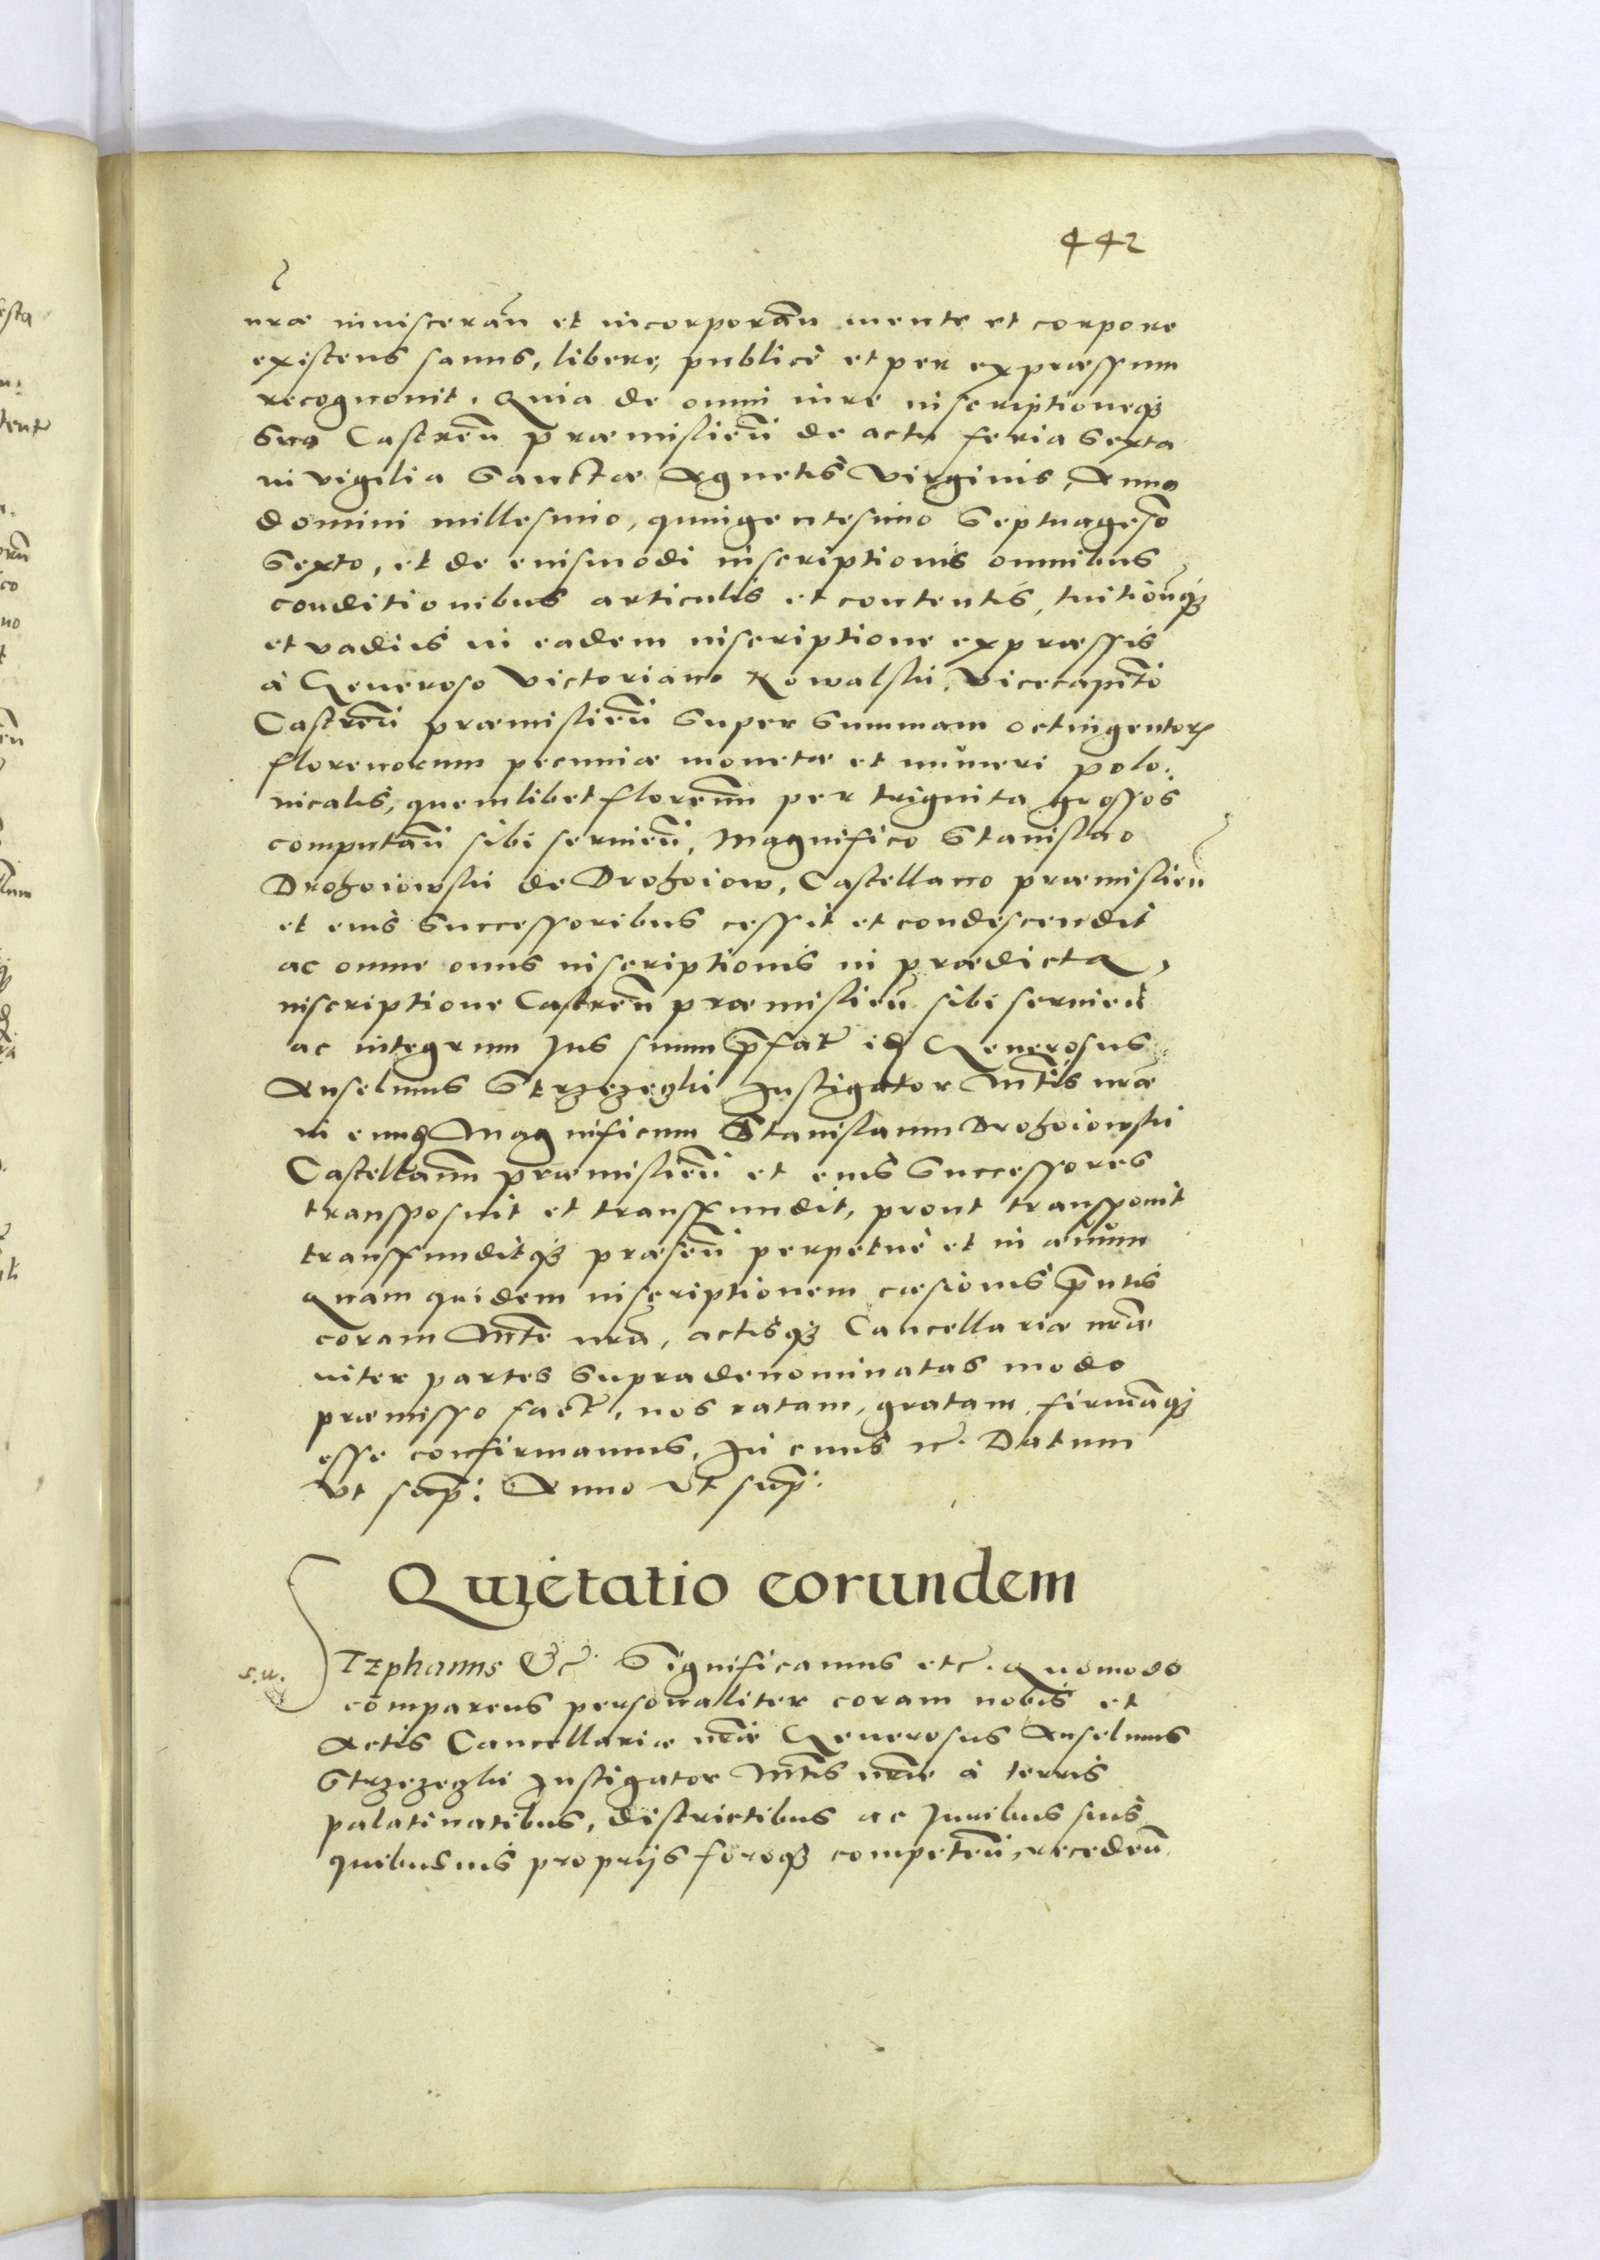 442
nræ inviscerañ et incorporañ mente et corpore
existens sanus, libere, publicè et per expræssum
recognovit. Quia de omni iure inscriptioneq3
sua Castreñ præmislieñ de actu feria sexta
in vigilia Sanctæ Agnetis Virginis, Anno
domini millesimo, quingentesimo Septuagesõ
Sexto, et de eiusmodi inscriptionis omnibus
conditionibus articulis et contentis, tuitionũq3
et vadiis in eadem inscriptione expræssis
à Generoso Victoriano Kowalski, Vicecapit̃o
Castreñ præmislieñ super summam octingentorũ
florenorum pecuniæ monetæ et numeri polo:
nicalis, quemlibet floreñm per triginta grossos
computañ sibi servieñ, Magnifico Stanislao
Drohoiowski de Drohoiow, Castellano præmislieñ
et eius Successoribus cessit et condescendit
ac omne onus inscriptionis in prædicta,
inscriptione Castreñ præmislieñ sibi servieñ
ac integrum Jus suum p̃fat̃ id Generosus
Anselmus Strzezegki Instigator Mt̃is nr̃æ
in eund Magnificum Stanislaum Drohoiowski
Castellañm præmislieñ et eius Successores
transposuit et transfundit, prout transponit
transfunditq3 præseñ perpetuè et in ævum
Quam quidem inscriptionem cæsionis p̃ntis
coram Mt̃e nr̃a, actisq3 Cancellariæ nr̃æ
inter partes supradenominatas modo
præmisso fact̃, nos ratam, gratam, firmãq3
esse confirmamus, In cuius rc̃. Datum
Ut sup̃: Anno Ut sup̃:
Quietatio eorundem
s.n.
STEphanus &c̃. Significamus etc̃. Quomodo
comparens personaliter coram nobis et
Actis Cancellariæ nr̃æ Generosus Anselmus
Strzezegki Instigator Mt̃is nr̃æ à terris
palatinatibus, districtibus ac Juribus suis
quibusuis proprijs foroq3 competeñ, recedeñ